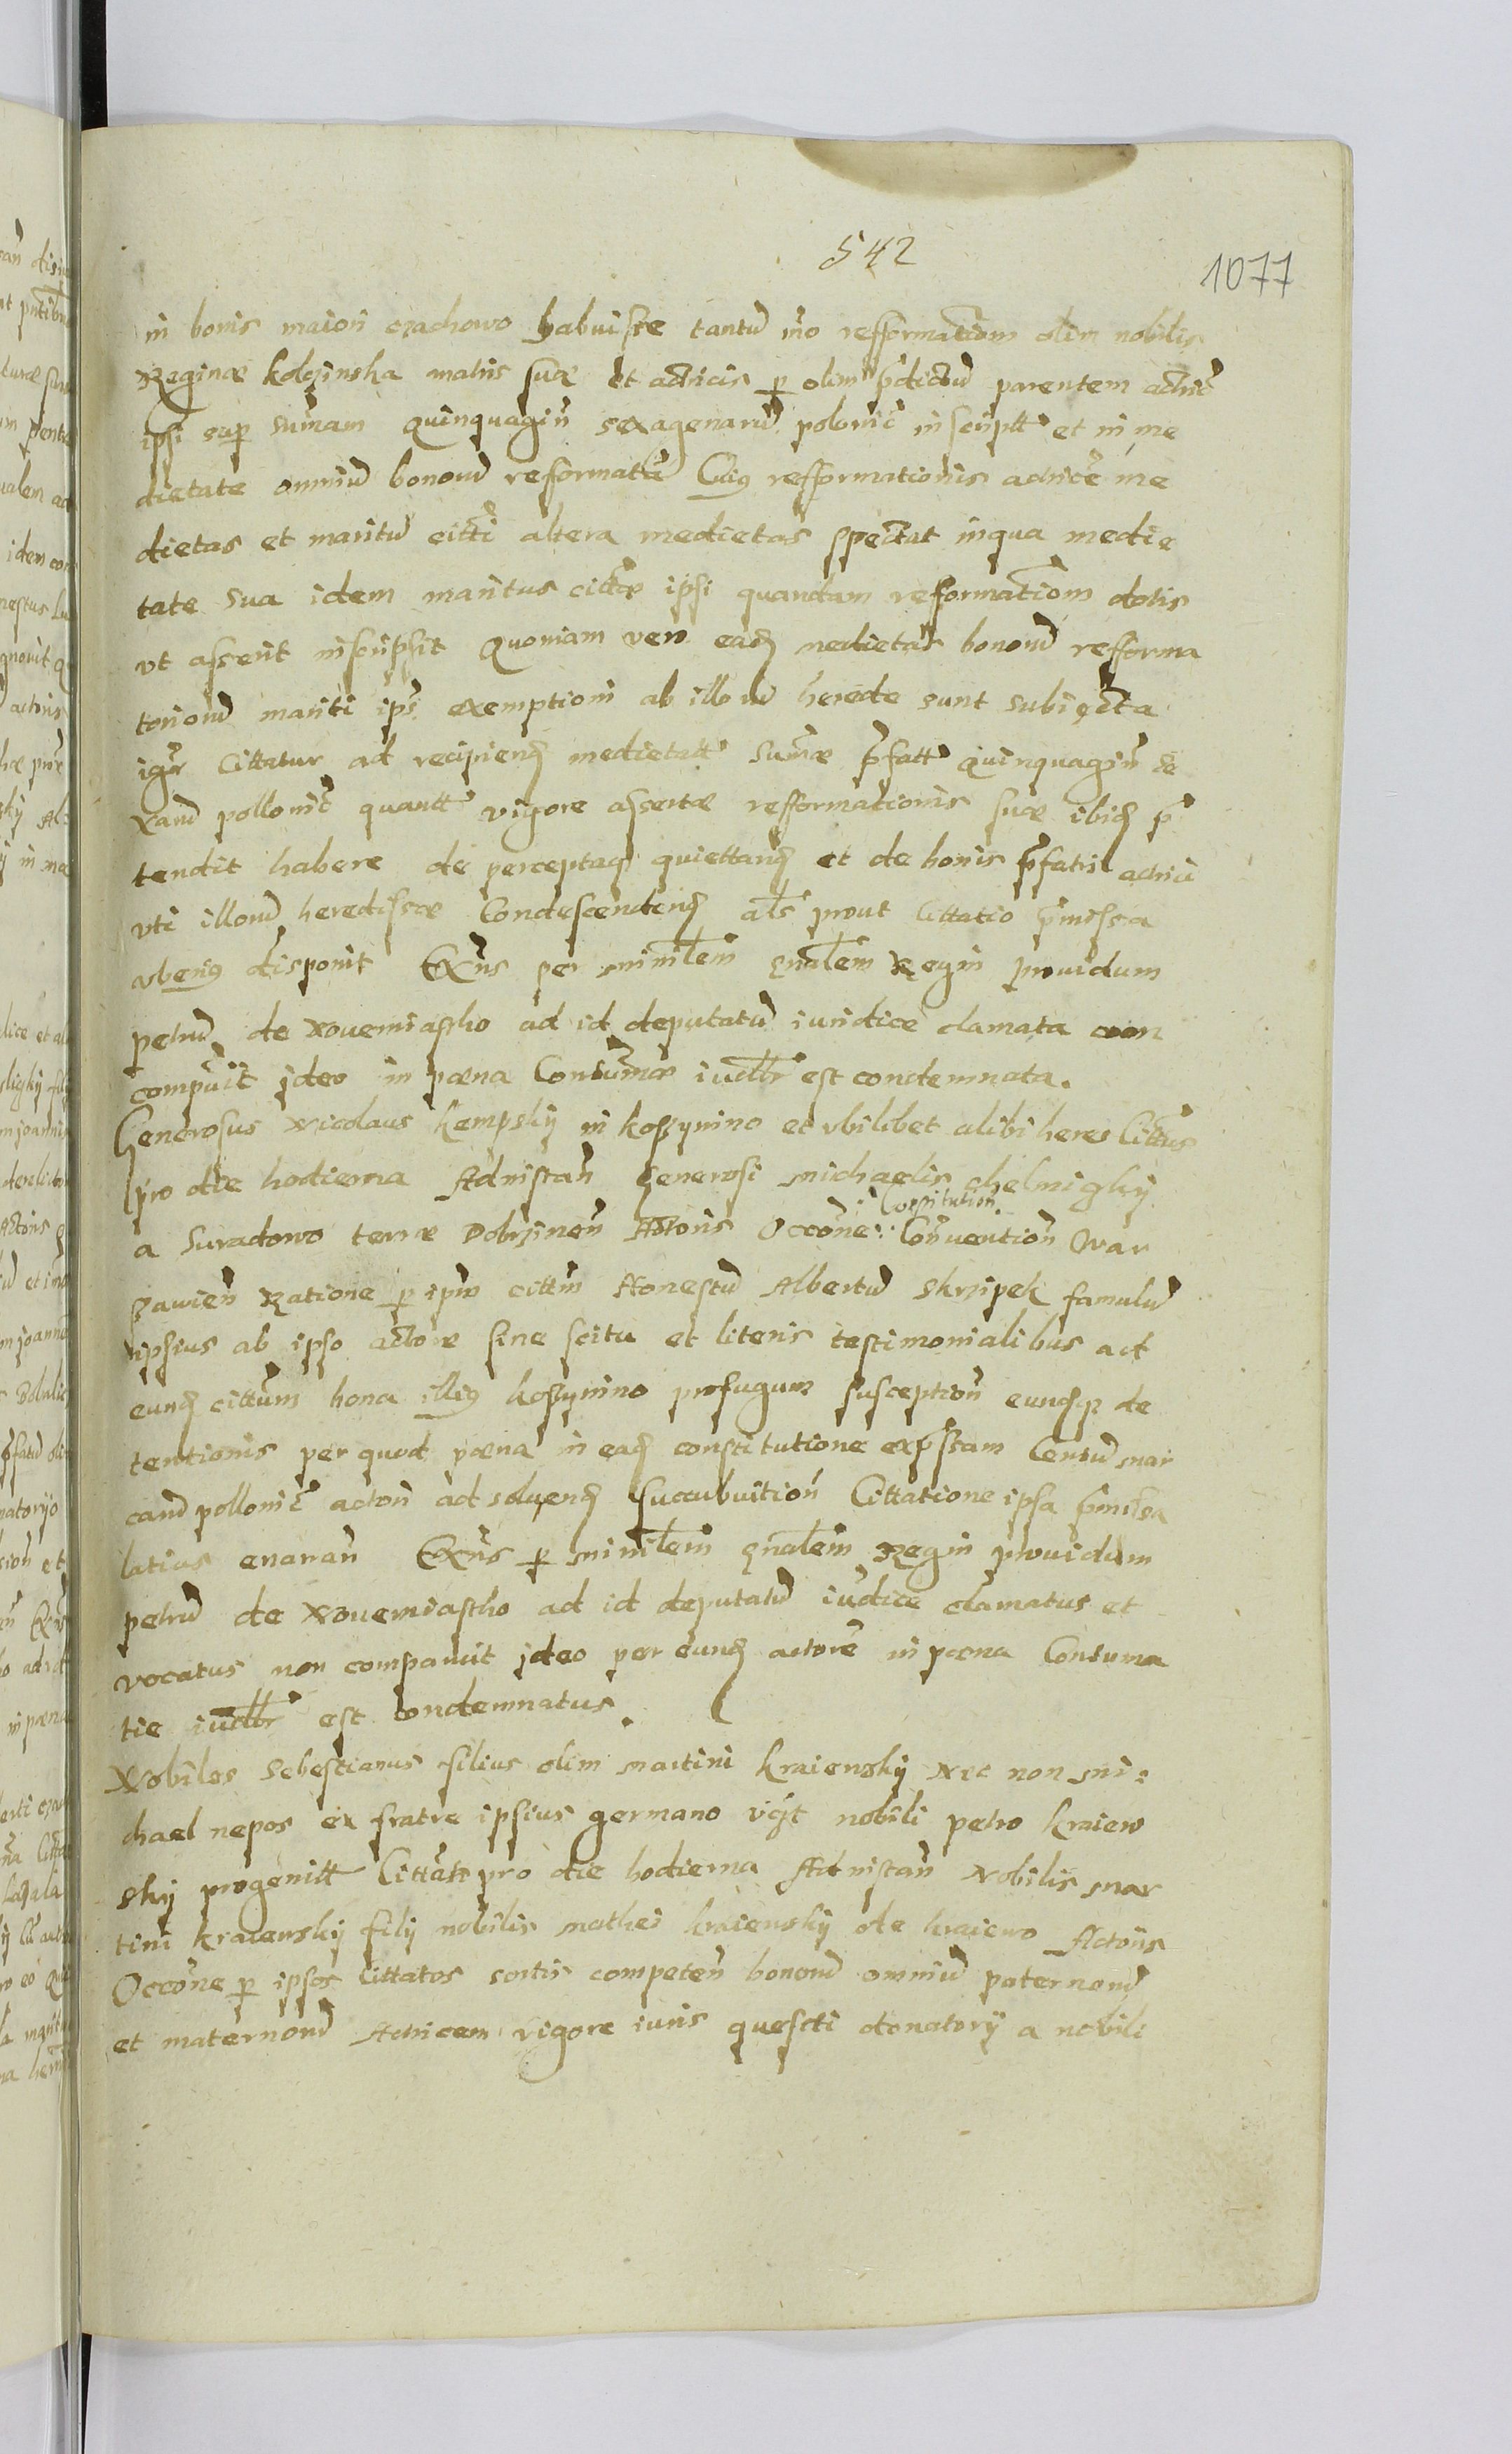 542
1077
in bonis maiori crachowo habuisse tantũ iño refformatiom olim nobilis
Reginæ kolczinska matris suæ et actricis p olim pdictũ parentem actric̃
ipsi sup sum̃am Quinquagiñ sexagenarũ polonic̃ inscriptt et in me
dietate omniũ bonorũ reformatã Cuiq refformationis actrice me
dietas et maritũ citti altera medietas spectat in qua medie
tate sua idem maritus cittæ ipsi quandam reformatiom dotis
vt asserit inscripsit Quoniam vero eadẽ medietas bonorũ refforma
toriorũ mariti ips̃ exemptioni ab illorũ herede sunt subiecta
igr̃ Cittatur ad recipiend medietatt sum̃æ pfatt Quinquagiñ se
xarũ pollonic̃ quantt vigore assertæ refformationis suæ ibid p̃
tendit habere de perceptaq quiettand et de bonis pfatis actrici
vti illorũ heredissæ Condescendend als prout Cittatio p̃missa
vberiq disponit Exñs per ministlem gnalem Regiñ prouidum
petrũ de Nouemiastho ad id deputatũ iuridice clamata non
comparuit jdeo in pæna Contumæ iudlr est condemnata.
Generosus Nicolaus kempsky in koszynino et vbilibet alibi heres Cittus
pro die hodierna Ad instañ Generosi Michaelis chelmigky
a Suradowo terræ Dobrzineñ Actoris Occõne: Constitution. Conuentioñ War
szawieñ Ratione p ipm̃ cittm̃ Honestũ Albertũ Skrzipek famulũ
ipsius ab ipso actore sine scitu et literis testimonialibus ad
eund cittum bona illiq koszynino profugum susceptioñ eundq de
tentionis per quod pæna in ead constitutione expressam Centũ mar
carũ pollonic̃ actori ad soluend succubuitioñ Cittatione ipsa p̃missa
latius enarrañ Exñs p ministlem gnalem Regiñ prouidum
petrũ de Nouemiastho ad id deputatũ iudice clamatus et
vocatus non comparuit jdeo per eund actorẽ in pæna Contuma
tie iudlr est condemnatus.
Nobiles Sebestianus filius olim martini kraiewsky Nec non Mi:
chael nepos ex fratre ipsius germano vigt nobili petro kraiew
sky progenitt Cittati pro die hodierna Ad instañ Nobilis Mar
tini kraiewsky filij nobilis mathei kraiewsky de kraiewo Actoris
Occõne p ipsos Cittatos sortis competeñ bonorũ omniũ paternorũ
et maternorũ Actricem vigore iuris quesiti donatorij a nobili